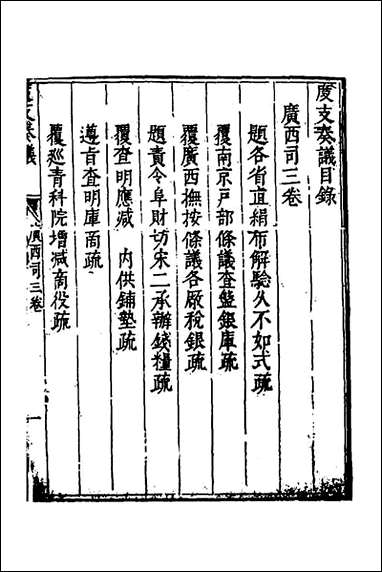 度支奏議目錄
廣西司三卷
題各省直絹布解驗久不如式疏
覆南京戶部條議查盤銀庫疏
覆廣西撫按條議各厰稅銀疏
題責令阜財坊宋二承辦錢糧疏
覆查明應減 内供鋪墊疏
遵旨查明庫啇疏
覆巡青科院增減啇役疏
度支奏議
廣西司三卷
一